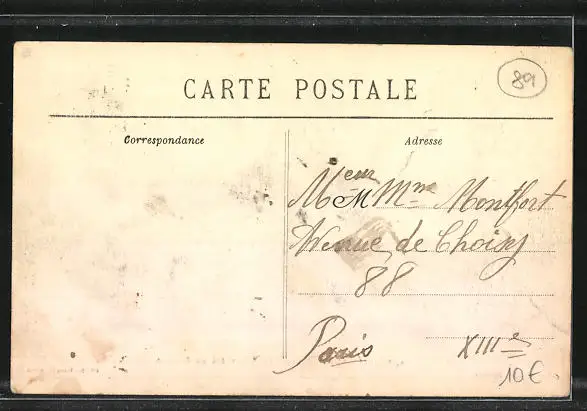 89
CARTE POSTALE
Correspondance
Adresse
Meur M Mme Montfort
Avenue de Choisy
88
Paris XIIIe
10€